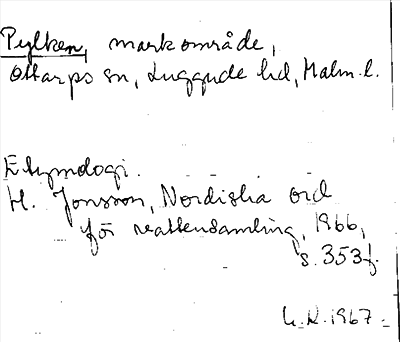 Pylken, markområde,
Ottarps sn, Luggude hd, Malm. l.
Etymologi.
H. Jonsson, Nordiska ord
för vattensamling, 1966,
s. 353f.
1967